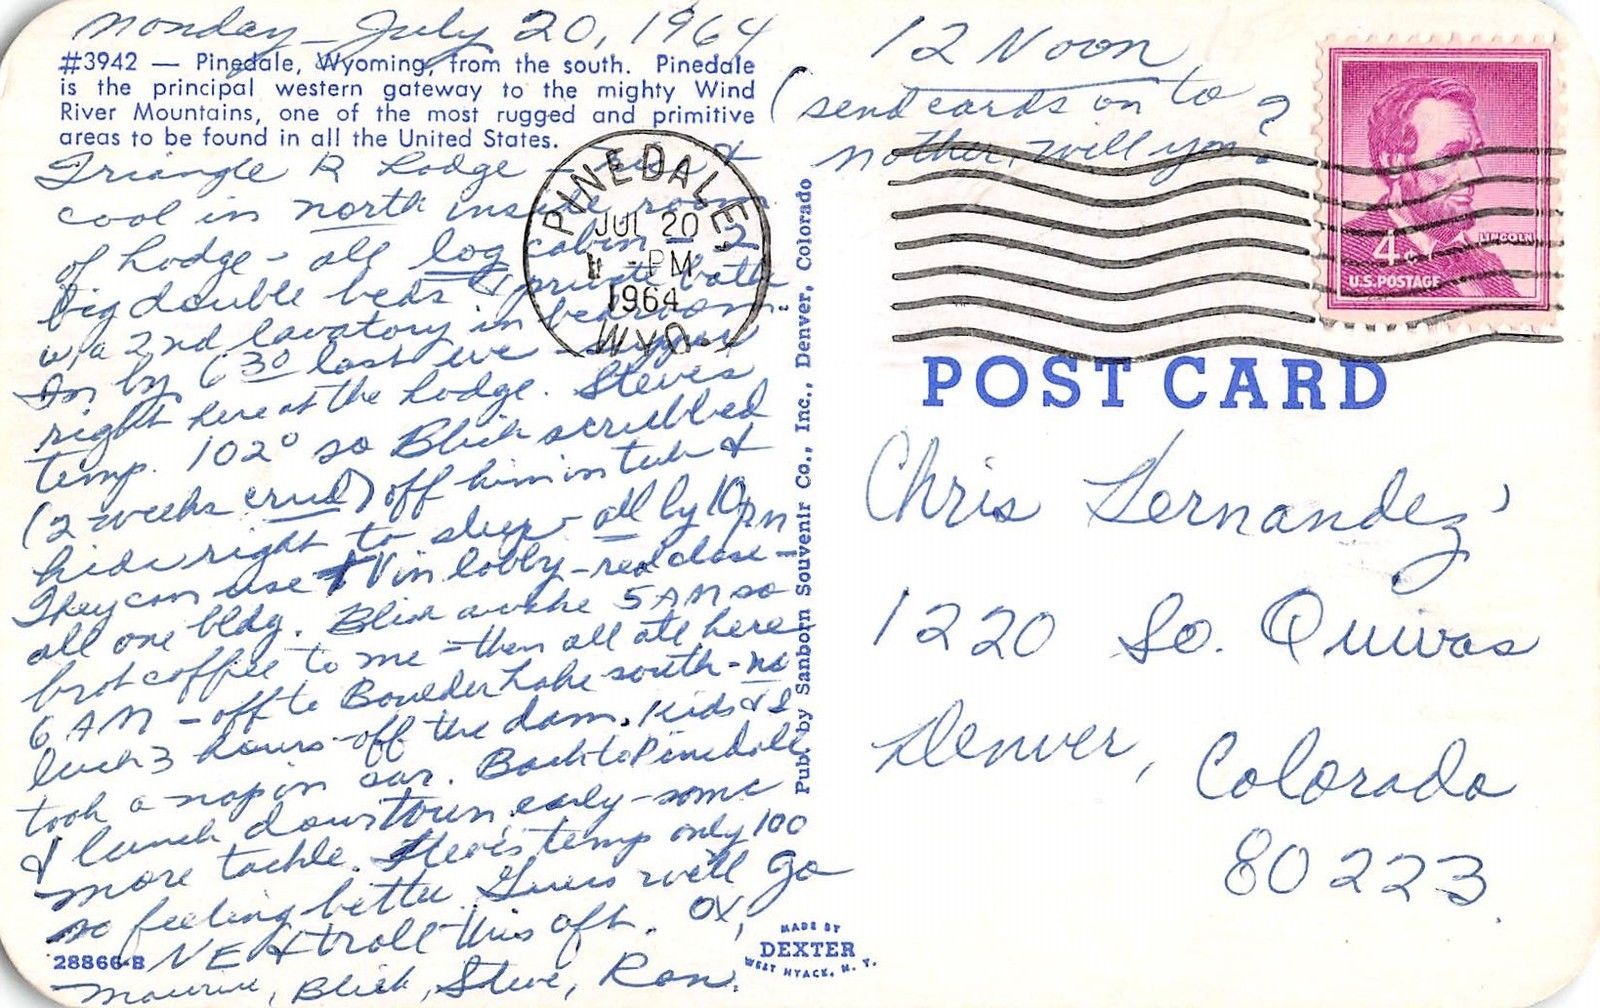 Monday - July 20, 1964
#3942 — Pinedale, Wyoming, from the south. Pinedale
is the principal western gateway to the mighty Wind
River Mountains, one of the most rugged and primitive
areas to be found in all the United States.
Triangle R Lodge -
cool in north inside room
of Lodge - all log cabin - 2
big double beds & private bath
w/a 2nd lavatory in bedroom
In by 6 30 last eve - supper
right here at the Lodge. Steve's
temp. 102° so Blick scrubbed
(2 weeks crud) off him in tub &
kids right to sleep - all by 10 PM
They can use TV in lobby - real close -
all one bldg. Blick awake 5 AM so
brot coffee to me - then all ate here
6 AM - off to Boulder Lake south - no
luck 3 hours - off the dam. Kids & I
took a nap in car. Back to Pinedale
& lunch downtown, early - some
more tackle. Steve's temp only 100
so feeling better. Guess we'll go
NE & troll this aft. OX,
Maurine, Blick, Steve, Ron.
28866-B
12 Noon
(send cards on to
mother, will you?
PINEDALE
JUL 20
PM
1964
WYO.
4¢
LINCOLN
U.S. POSTAGE
POST CARD
Chris Hernandez
1220 So. Quivas
Denver, Colorado
80223.
Pub. by Sanborn Souvenir Co., Inc., Denver, Colorado
MADE BY
DEXTER
WEST NYACK, N. Y.